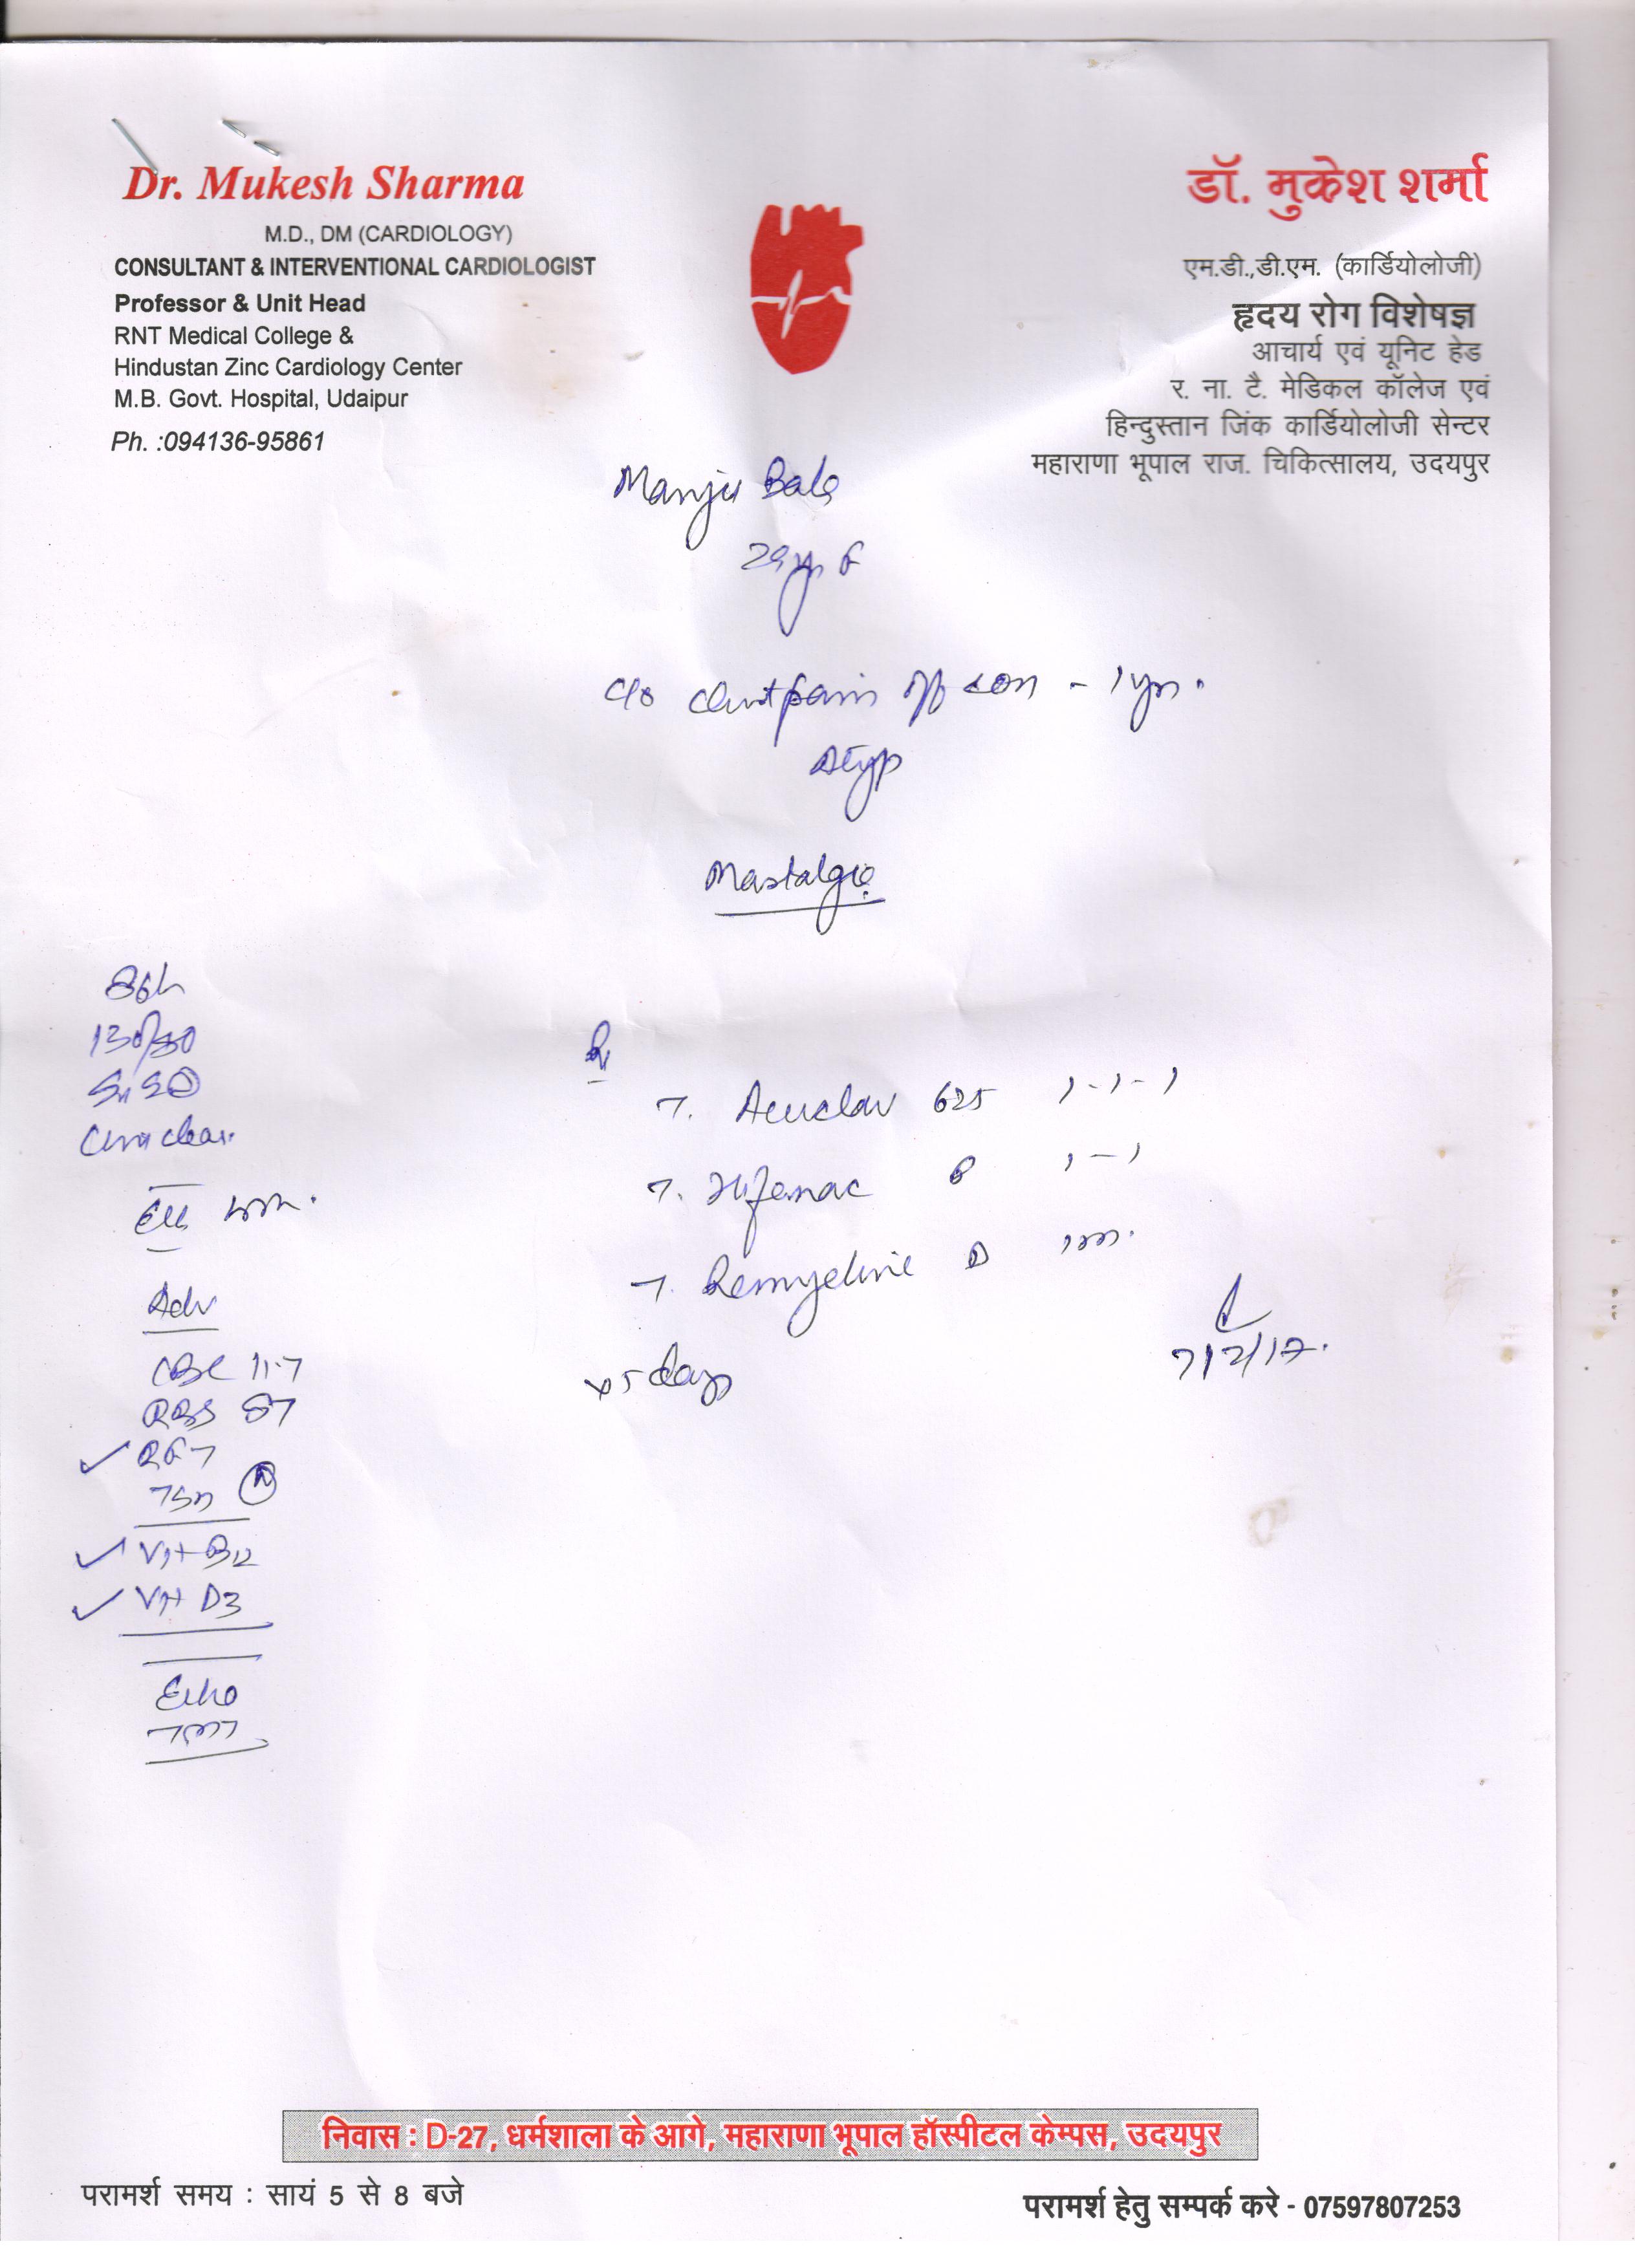 Dr. Mukesh Sharma
M.D., DM (CARDIOLOGY)
CONSULTANT & INTERVENTIONAL CARDIOLOGIST
Professor & Unit Head
RNT Medical College &
Hindustan Zinc Cardiology Center
M.B. Govt. Hospital, Udaipur
Ph. :094136-95861
डॉ. मुकेश शर्मा
एम.डी.,डी.एम. (कार्डियोलोजी)
हृदय रोग विशेषज्ञ
आचार्य एवं यूनिट हेड
र. ना. टै. मेडिकल कॉलेज एवं
हिन्दुस्तान जिंक कार्डियोलोजी सेन्टर
महाराणा भूपाल राज. चिकित्सालय, उदयपुर
Manju Bala
29yr F
C/o Chest pain off & on - 1 yr.
Atyp
Mastalgia
130/80
S1S2
Chest clear.
Adv
CBC 11.7
RBS 87
RFT
TSH N
Vit B12
Vit D3
Echo
TMT
Rx
T. Acuclav 625 1-1-1
T. Hifenac P 1-1
T. Remylin D
x 5 days
7/2/17.
निवास : D-27, धर्मशाला के आगे, महाराणा भूपाल हॉस्पीटल केम्पस, उदयपुर
परामर्श समय : सायं 5 से 8 बजे
परामर्श हेतु सम्पर्क करे - 07597807253